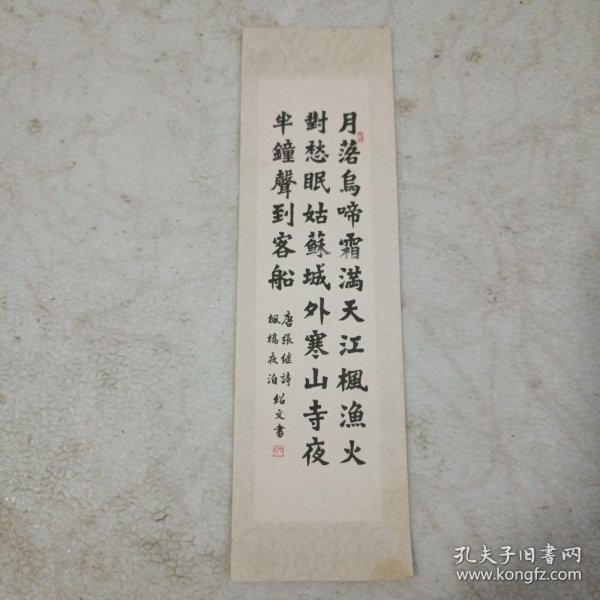 月落烏啼霜滿天江楓漁火
對愁眠姑蘇城外寒山寺夜
半鐘聲到客船
唐張继詩
楓橋夜泊 紹文書
孔夫子旧书网
www.kongfz.com